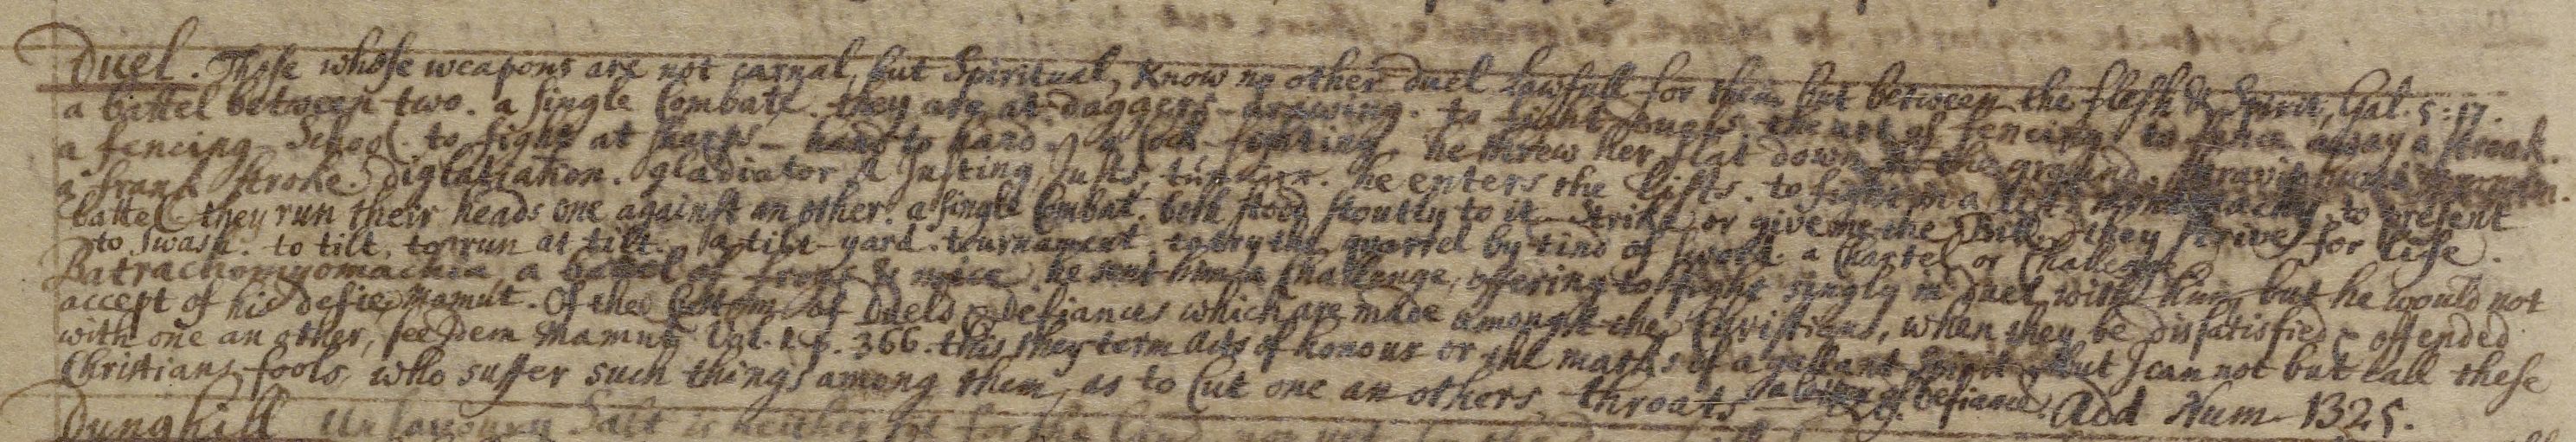 Duel. Those whose weapons are not carnal, but Spiritual, Know no other duel lawfull for them but between the flesh & Spirit, Gal. 5:17.
a battel between two. a single Combate. they are at daggers-drawing. to fight duels. the art of fencing. to fence away a stroak.
a fencing School. to fight at sharps - hand to hand. a Cock-fighting. he threw her flat down to the ground.
a frank stroke. Digladiation. gladiator A Justing, Justs he enters the lists. to fight in a to present
battel they run their heads one against an other. a single Combat. both stood stoutly to it. Strike or give me the they strive for life.
to swash. to tilt, to run at tilt. a tilt-yard. tournament, to try the quarrel by dint of sword. a Chartel or Challenge.
Batrachomyomachia a battel of frogs & mice. he sent him a Challenge, offering to fight singly in duel with him, but he would not
accept of his defie, Mamut. Of the Custom of Duels & Defiances which are made amongst the Christians, when they be dissatisfied & offended
with one an other, see Dem Mamut Vol. 1. p. 366. this they term Acts of honour or the marks of a gallant Spirit, but I can not but call these
Christians, fools, who suffer such things among them, as to Cut one an others throats - a letter of Defiance. Add Num. 1325.
Dunghill Unsavoury Salt is neither fit for the Land nor yet for the